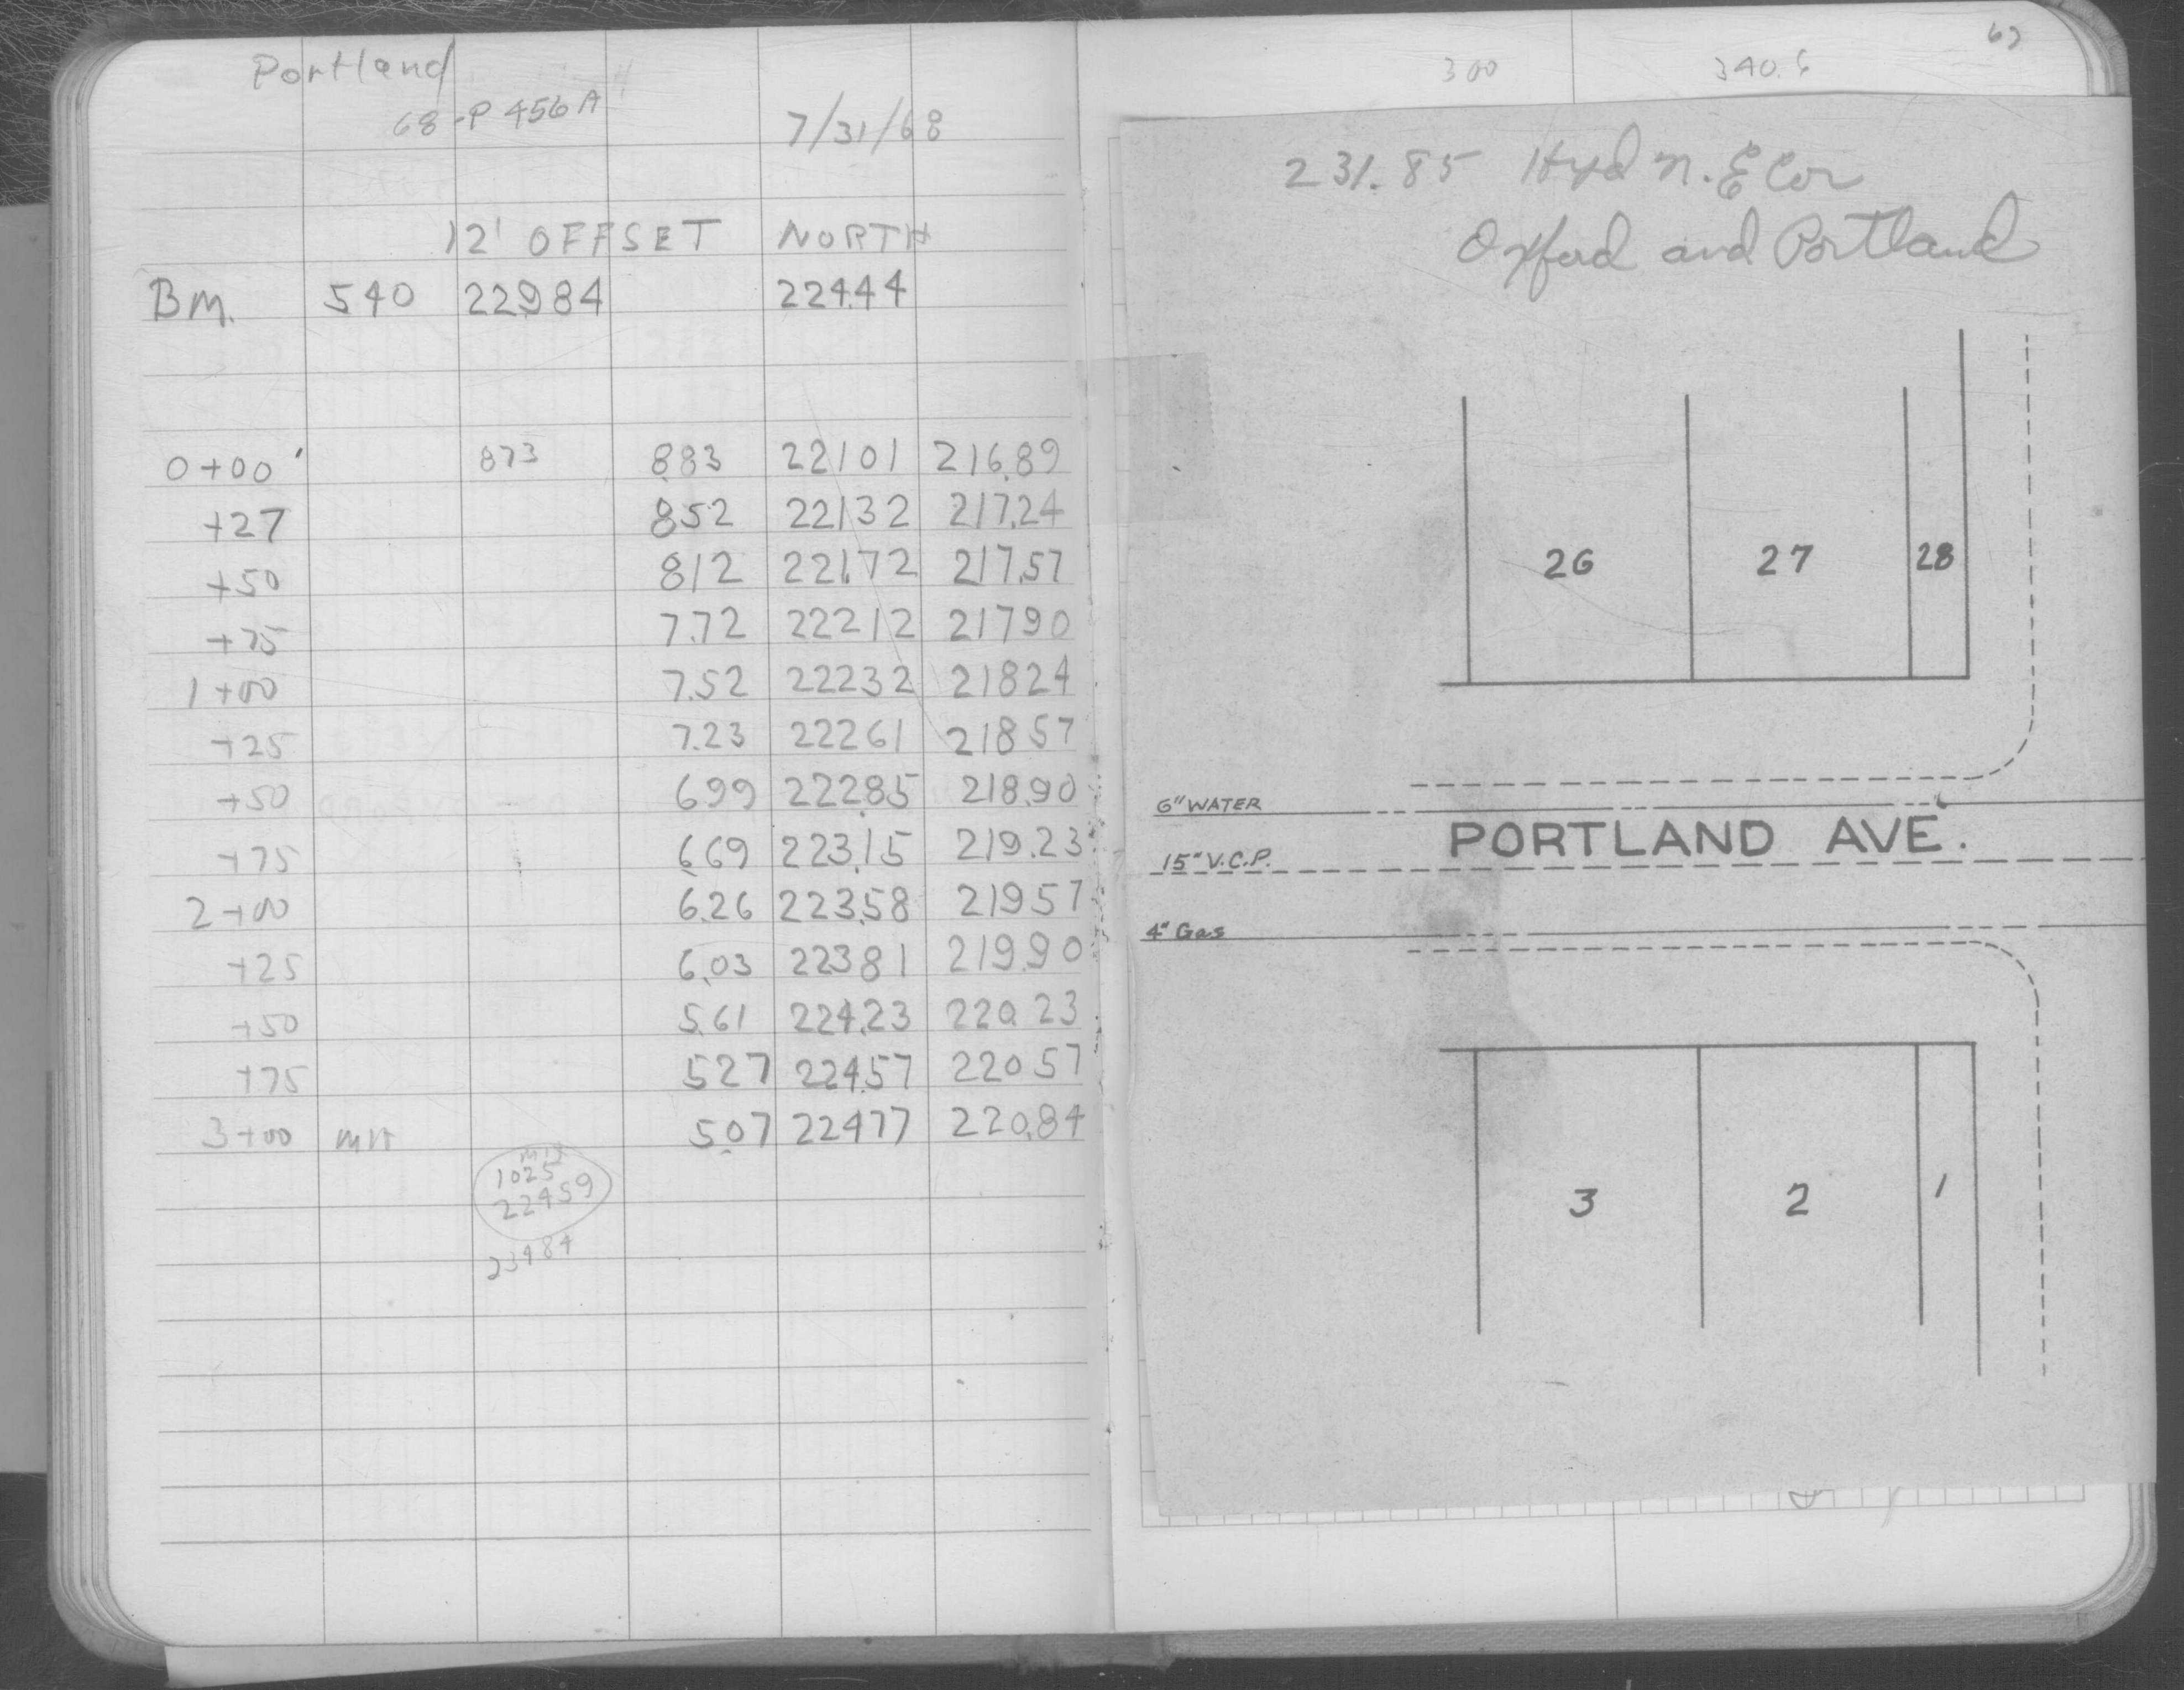 Portland
68-P 456A
7/31/68
12' OFFSET NORTH
BM. 540 22984 224.44
0+00 873 8.83 22101 216.89
+27 852 22132 217.24
+50 812 221.72 217.57
+75 7.72 22212 21790
1+00 7.52 22232 21824
+25 7.23 22261 21857
+50 699 222.85 218.90
+75 6.69 223.15 219.23
2+00 6.26 223.58 21957
+25 6.03 22381 219.90
+50 5.61 224.23 220.23
+75 527 224.57 22057
3+00 MH 5.07 22477 220.84
MH
1025
22459
23484
300 340.6
231.85 Hyd N.E Cor
Oxford and Portland
26 27 28
6" WATER
PORTLAND AVE.
15" V.C.P.
4" Gas
3 2 1